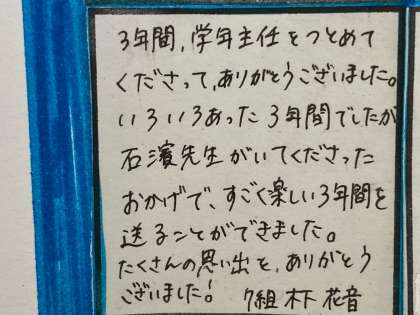 3年間、学年主任をつとめて
くださって、ありがとうございました。
いろいろあった3年間でしたが
石濱先生がいてくださった
おかげで、すごく楽しい3年間を
送ることができました。
たくさんの思い出と、ありがとう
ございました! 7組 木下 花音